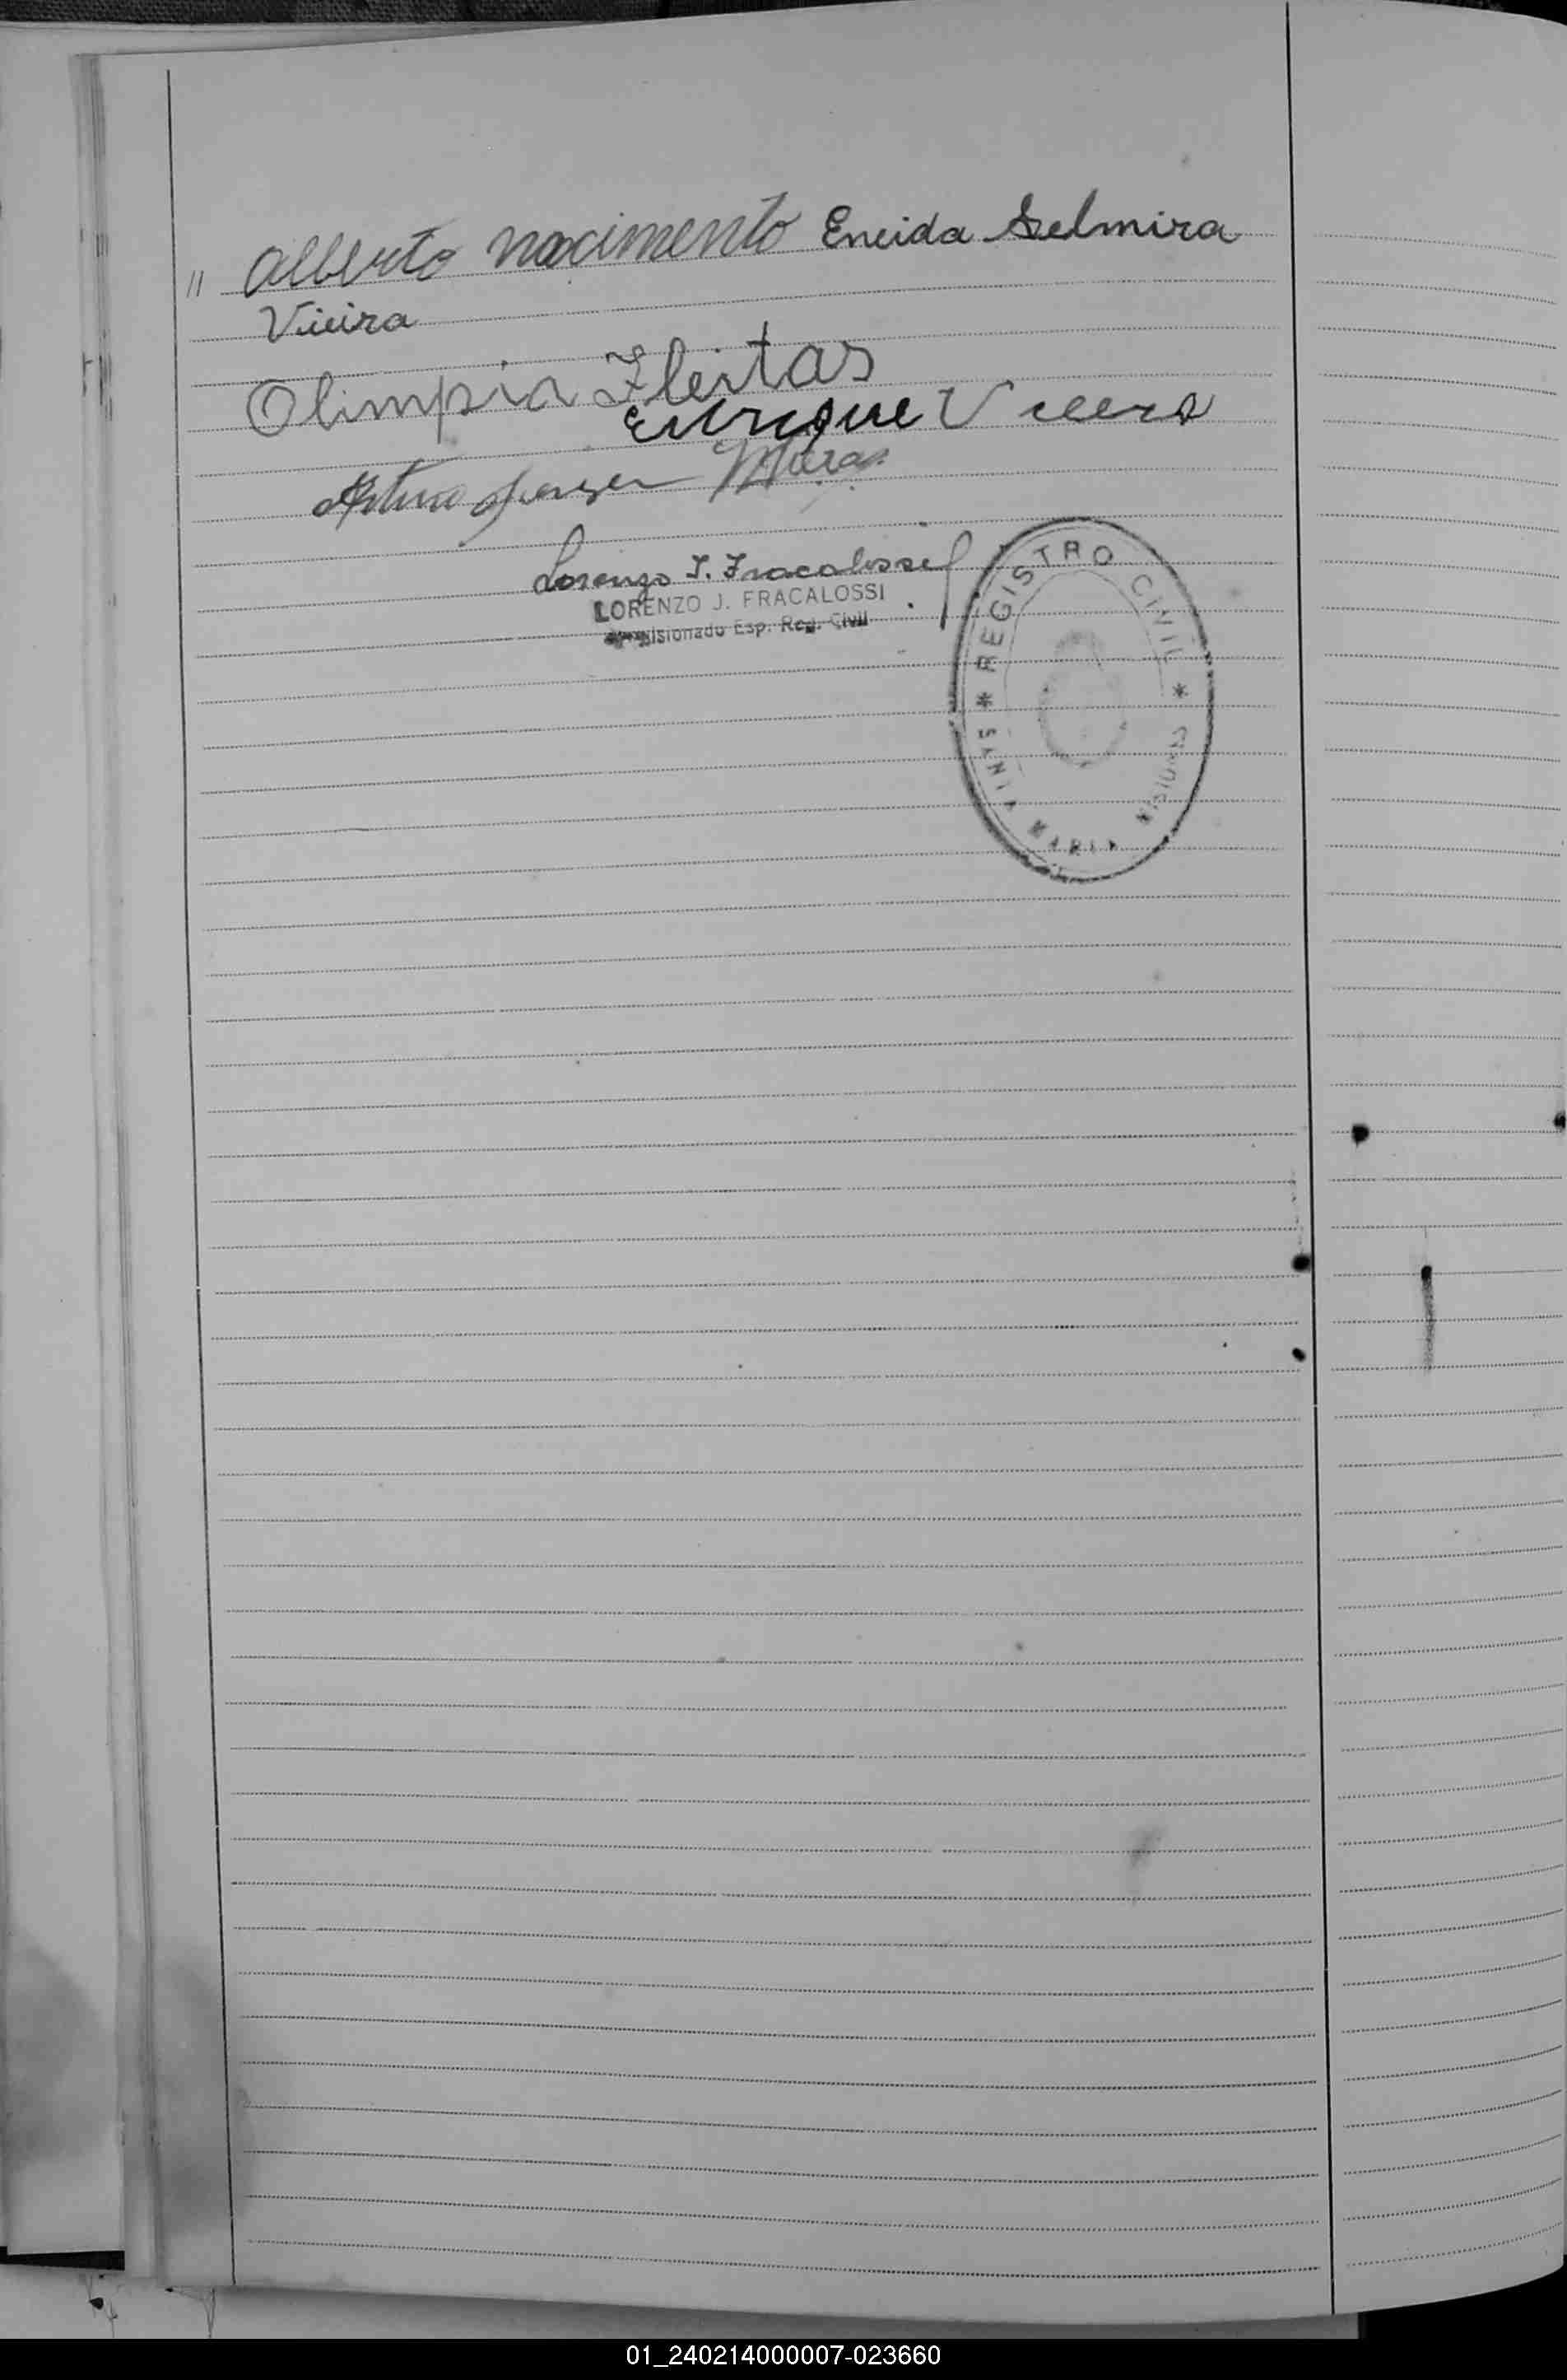 " Alberto nacimento Eneida Selmira
Vieira
Olimpia Fleitas
Enrique Vieira
Arturo
Lorenzo J. Fracalossi
LORENZO J. FRACALOSSI
Comisionado Esp. Reg. Civil
* REGISTRO CIVIL *
SANTA MARIA MISIONES
01_240214000007-023660